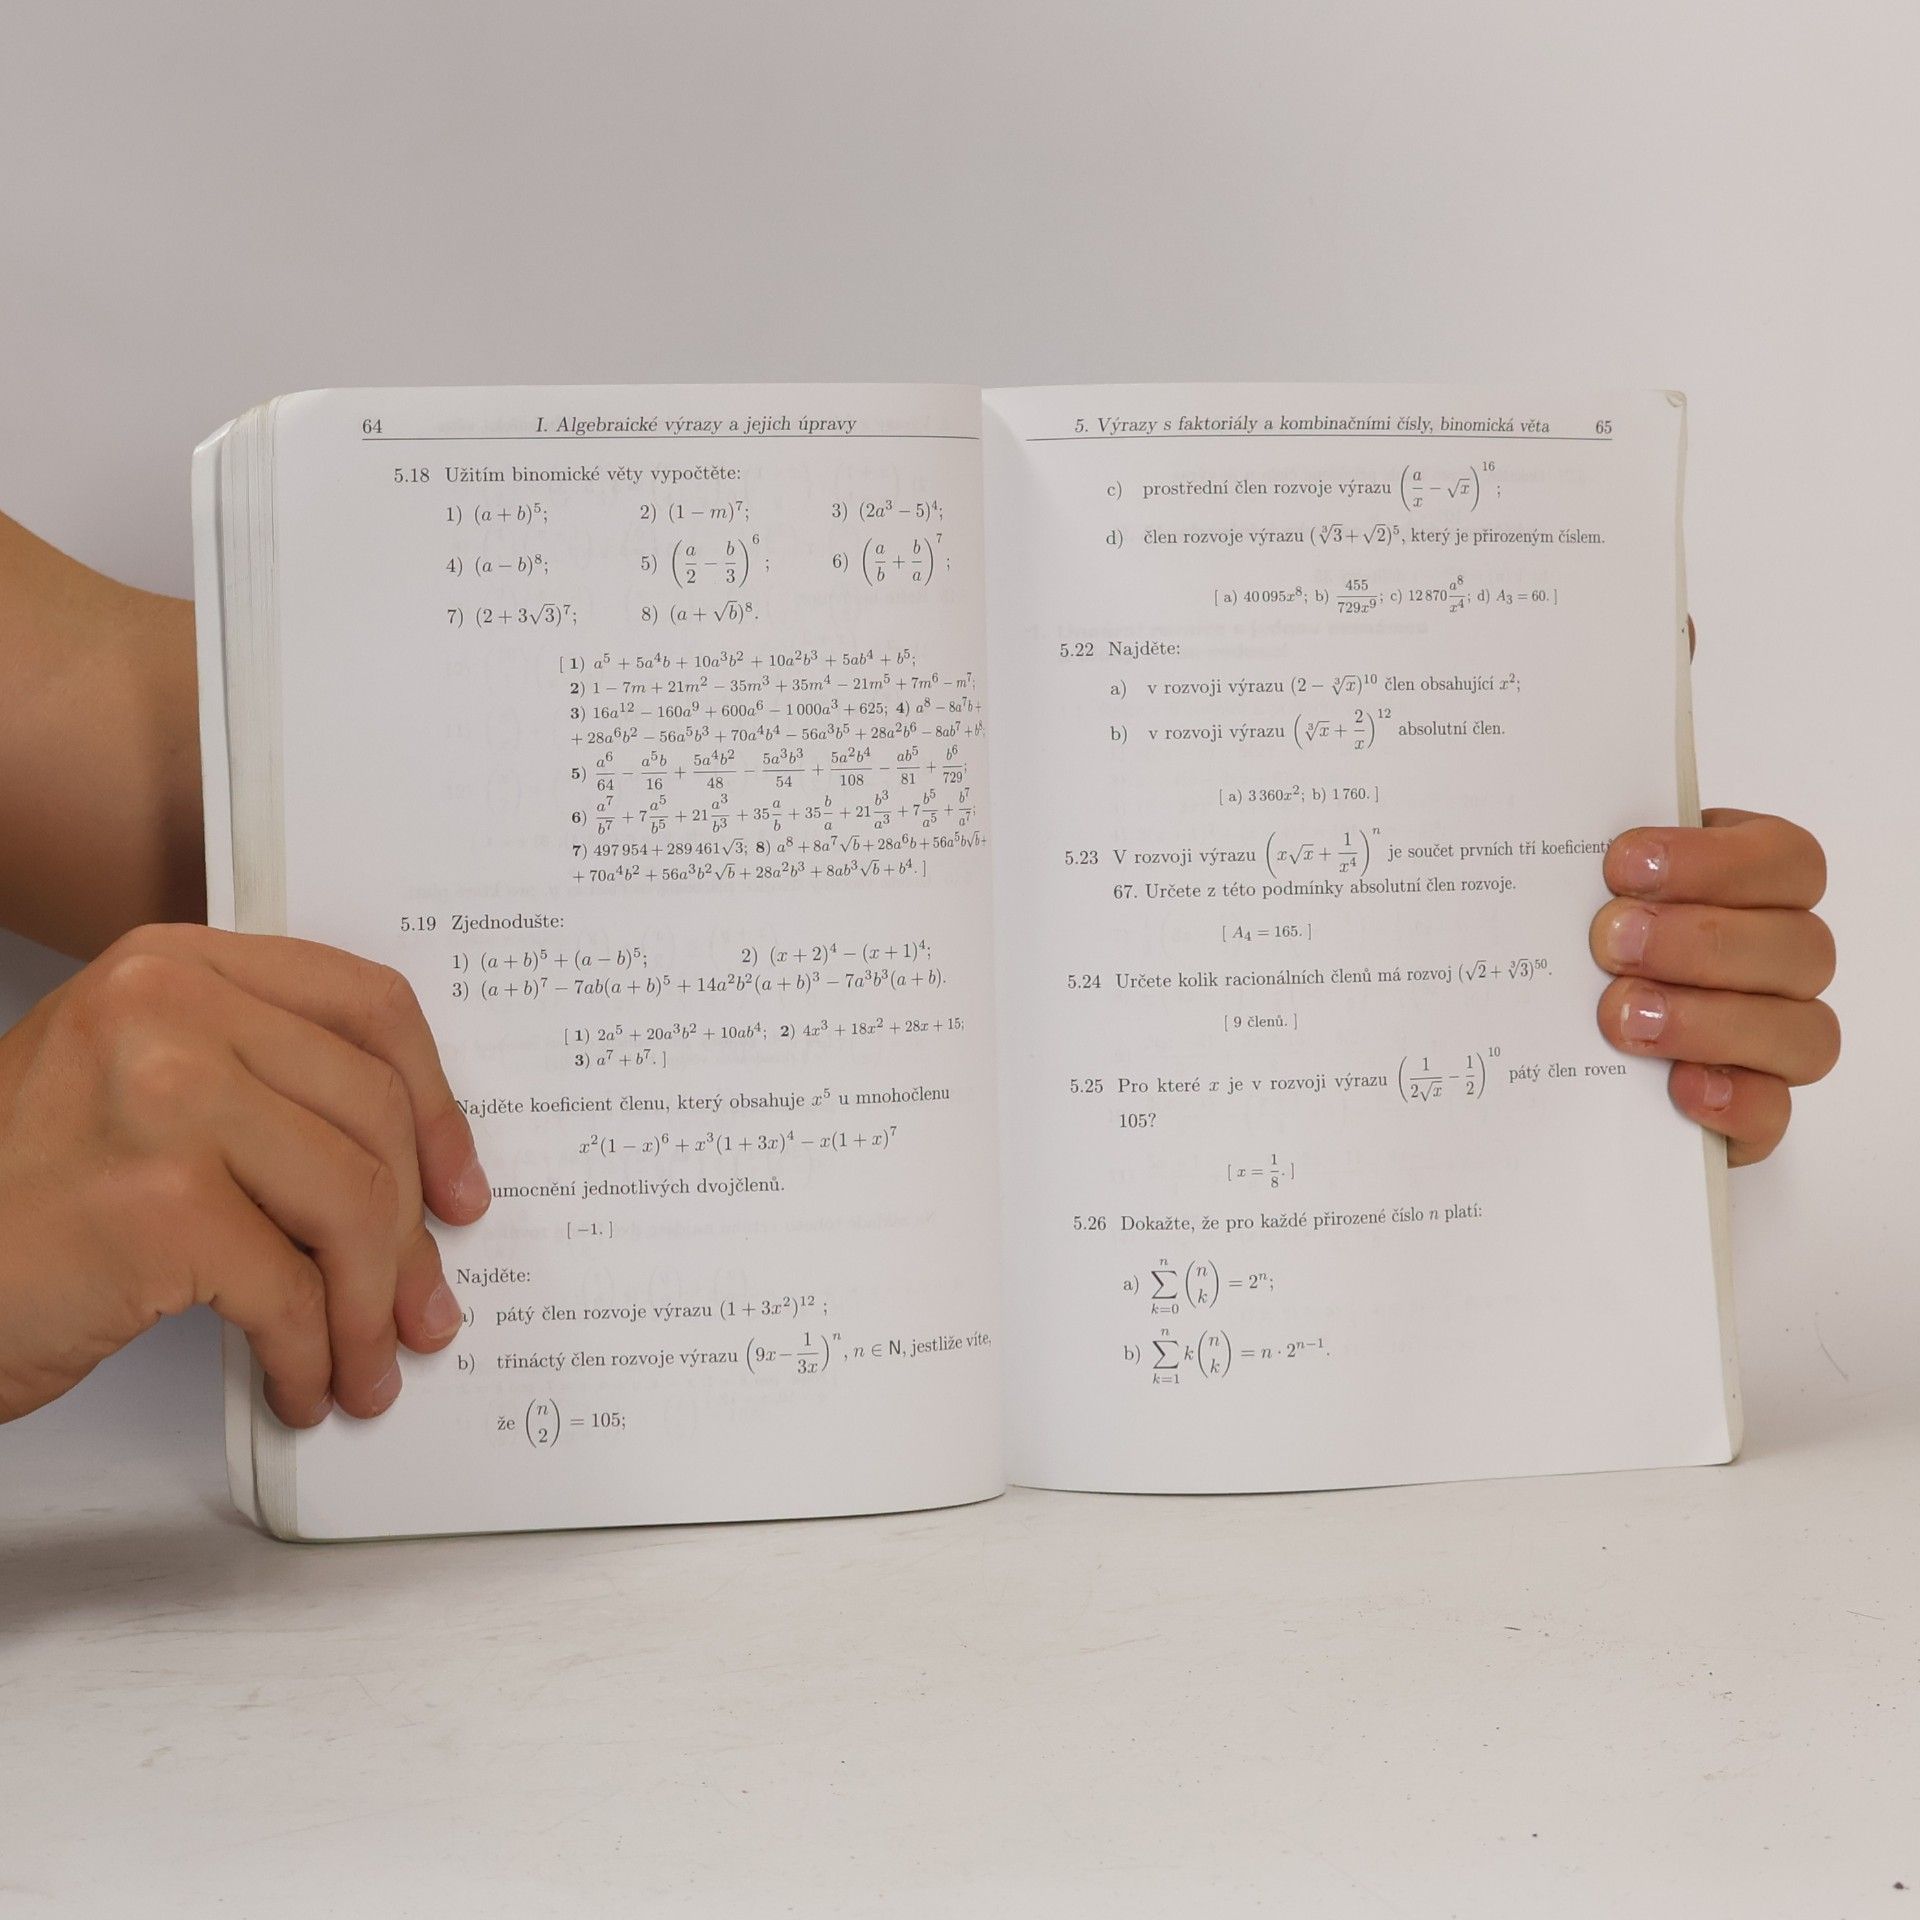 64 I. Algebraické výrazy a jejich úpravy
5.18 Užitím binomické věty vypočtěte:
1) (a + b)⁵; 2) (1 − m)⁷; 3) (2a³ − 5)⁴;
4) (a − b)⁸; 5) (a/2 − b/3)⁶; 6) (a/b + b/a)⁷;
7) (2 + 3√3)⁷; 8) (a + √b)⁸.
[ 1) a⁵ + 5a⁴b + 10a³b² + 10a²b³ + 5ab⁴ + b⁵;
2) 1 − 7m + 21m² − 35m³ + 35m⁴ − 21m⁵ + 7m⁶ − m⁷;
3) 16a¹² − 160a⁹ + 600a⁶ − 1 000a³ + 625; 4) a⁸ − 8a⁷b+
+ 28a⁶b² − 56a⁵b³ + 70a⁴b⁴ − 56a³b⁵ + 28a²b⁶ − 8ab⁷ + b⁸;
5) a⁶/64 − a⁵b/16 + 5a⁴b²/48 − 5a³b³/54 + 5a²b⁴/108 − ab⁵/81 + b⁶/729;
6) a⁷/b⁷ + 7a⁵/b⁵ + 21a³/b³ + 35a/b + 35b/a + 21b³/a³ + 7b⁵/a⁵ + b⁷/a⁷;
7) 497 954 + 289 461√3; 8) a⁸ + 8a⁷√b + 28a⁶b + 56a⁵b√b+
+ 70a⁴b² + 56a³b²√b + 28a²b³ + 8ab³√b + b⁴. ]
5.19 Zjednodušte:
1) (a + b)⁵ + (a − b)⁵; 2) (x + 2)⁴ − (x + 1)⁴;
3) (a + b)⁷ − 7ab(a + b)⁵ + 14a²b²(a + b)³ − 7a³b³(a + b).
[ 1) 2a⁵ + 20a³b² + 10ab⁴; 2) 4x³ + 18x² + 28x + 15;
3) a⁷ + b⁷. ]
Najděte koeficient členu, který obsahuje x⁵ u mnohočlenu
x²(1 − x)⁶ + x³(1 + 3x)⁴ − x(1 + x)⁷
umocnění jednotlivých dvojčlenů.
[ −1. ]
Najděte:
a) pátý člen rozvoje výrazu (1 + 3x²)¹² ;
b) třináctý člen rozvoje výrazu (9x − 1/3x)ⁿ, n ∈ N, jestliže víte,
že (n 2) = 105;
5. Výrazy s faktoriály a kombinačními čísly, binomická věta 65
c) prostřední člen rozvoje výrazu (a/x − √x)¹⁶;
d) člen rozvoje výrazu (∛3 + √2)⁵, který je přirozeným číslem.
[ a) 40 095x⁸; b) 455/729x⁹; c) 12 870 a⁸/x⁴; d) A₃ = 60. ]
5.22 Najděte:
a) v rozvoji výrazu (2 − ∛x)¹⁰ člen obsahující x²;
b) v rozvoji výrazu (∛x + 2/x)¹² absolutní člen.
[ a) 3 360x²; b) 1 760. ]
5.23 V rozvoji výrazu (x√x + 1/x⁴)ⁿ je součet prvních tří koeficientů
67. Určete z této podmínky absolutní člen rozvoje.
[ A₄ = 165. ]
5.24 Určete kolik racionálních členů má rozvoj (√2 + ∛3)⁵⁰.
[ 9 členů. ]
5.25 Pro které x je v rozvoji výrazu (1/2√x − 1/2)¹⁰ pátý člen roven
105?
[ x = 1/8. ]
5.26 Dokažte, že pro každé přirozené číslo n platí:
a) ∑ₖ₌₀ⁿ (n k) = 2ⁿ;
b) ∑ₖ₌₁ⁿ k(n k) = n · 2ⁿ⁻¹.